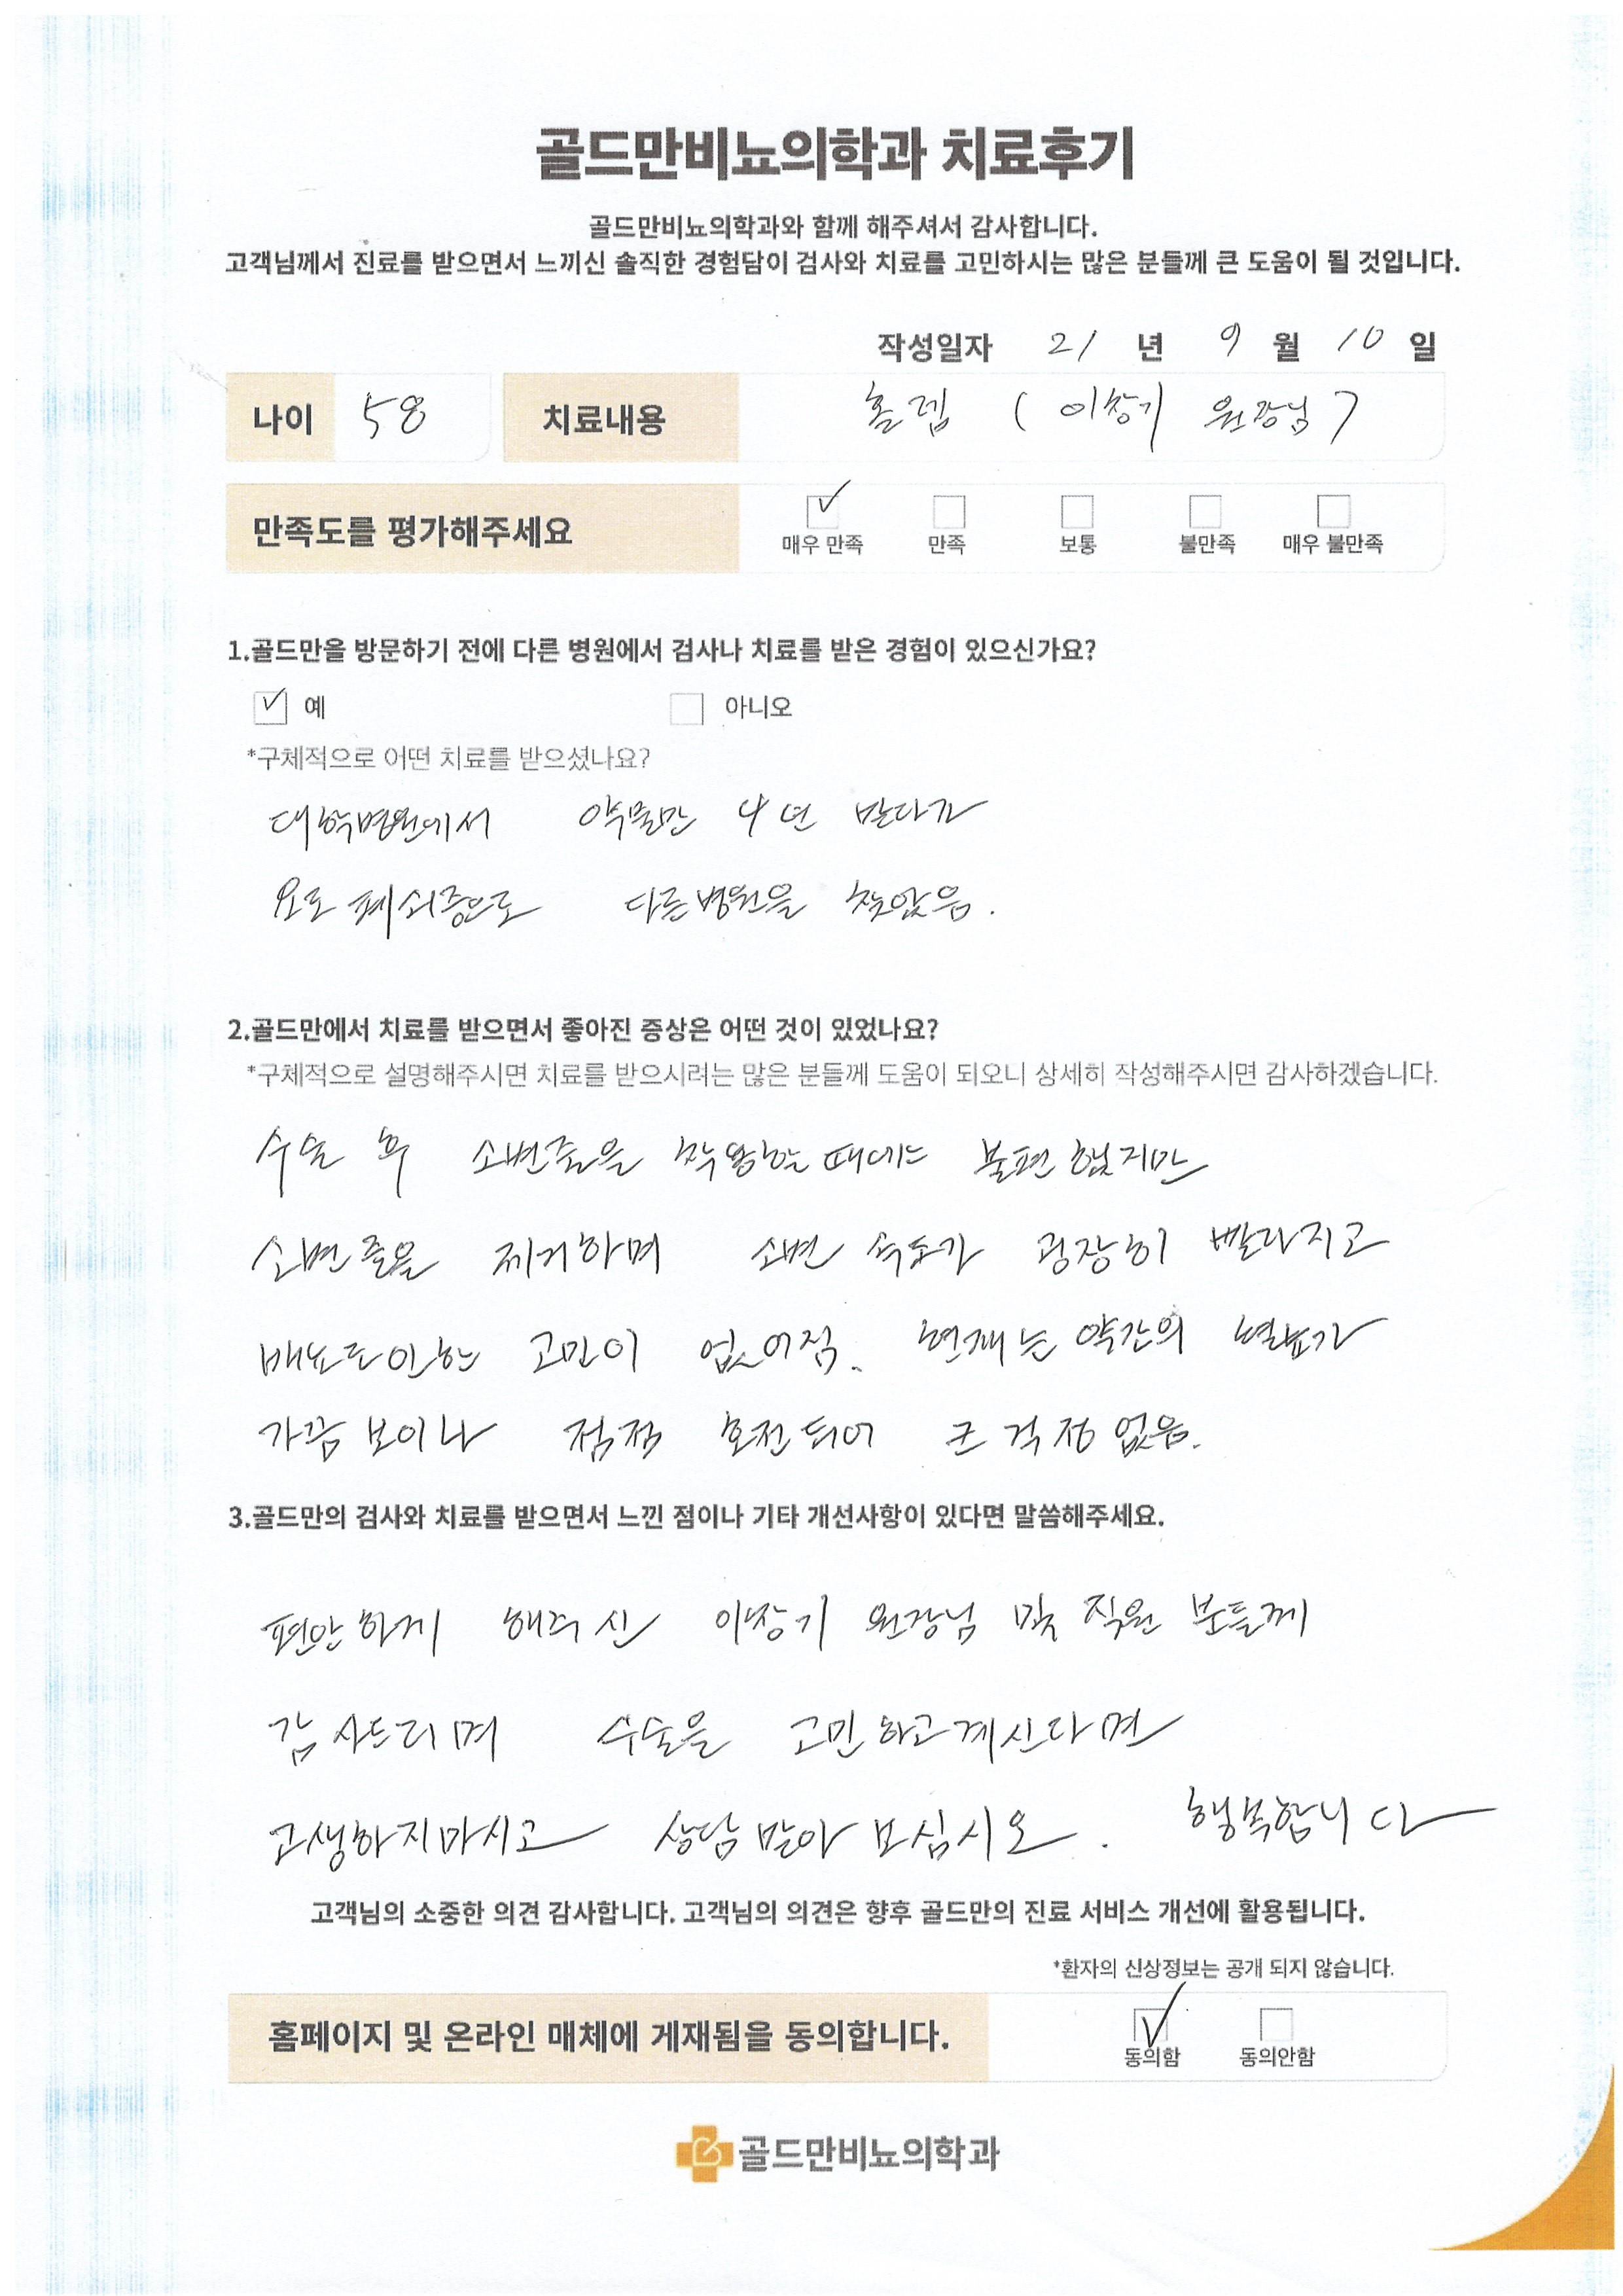 골드만비뇨의학과 치료후기
골드만비뇨의학과와 함께 해주셔서 감사합니다.
고객님께서 진료를 받으면서 느끼신 솔직한 경험담이 검사와 치료를 고민하시는 많은 분들께 큰 도움이 될 것입니다.
작성일자 21 년 9 월 10 일
나이 58 치료내용 홀렙 ( 이창기 원장님 )
만족도를 평가해주세요
매우 만족 만족 보통 불만족 매우 불만족
1.골드만을 방문하기 전에 다른 병원에서 검사나 치료를 받은 경험이 있으신가요?
예 아니오
*구체적으로 어떤 치료를 받으셨나요?
대학병원에서 약물만 4년 받다가
요로폐쇄증으로 다른병원을 찾았음.
2.골드만에서 치료를 받으면서 좋아진 증상은 어떤 것이 있었나요?
*구체적으로 설명해주시면 치료를 받으시려는 많은 분들께 도움이 되오니 상세히 작성해주시면 감사하겠습니다.
수술 후 소변줄을 착용할 때에는 불편했지만
소변줄을 제거하며 소변 속도가 굉장히 빨라지고
배뇨로인한 고민이 없어짐. 현재는 약간의 혈뇨가
가끔 보이나 점점 호전되어 큰 걱정없음.
3.골드만의 검사와 치료를 받으면서 느낀 점이나 기타 개선사항이 있다면 말씀해주세요.
편안하게 해주신 이창기 원장님 및 직원 분들께
감사드리며 수술을 고민하고계신다면
고생하지마시고 상담 받아 보십시오. 행복합니다
고객님의 소중한 의견 감사합니다. 고객님의 의견은 향후 골드만의 진료 서비스 개선에 활용됩니다.
*환자의 신상정보는 공개 되지 않습니다.
홈페이지 및 온라인 매체에 게재됨을 동의합니다.
동의함 동의안함
골드만비뇨의학과